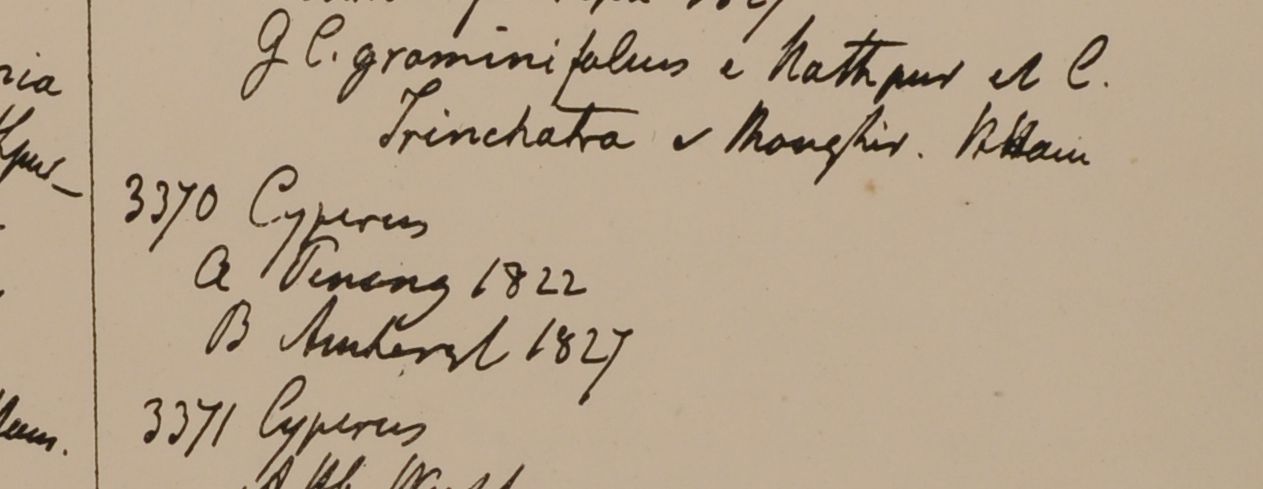 1827
G C. graminifolius e Nathpur et C.
Trinchatra e Monghir. H Ham
3370 Cyperus
A Penang 1822
B Amherst 1827
3371 Cyperus
A Hb. Wight
ria
pur_
Ham.